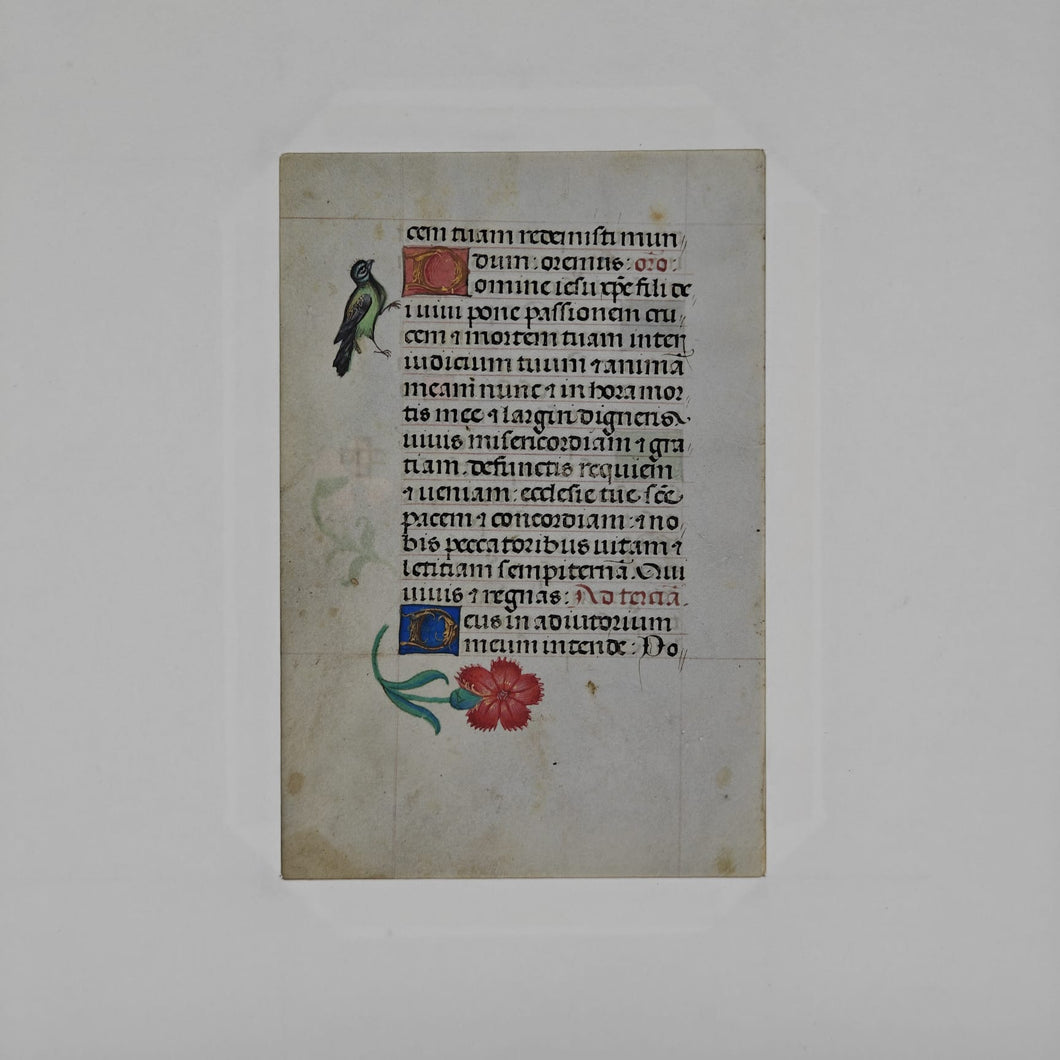 cem tuam redemisti mun
dum: oremus: orō:
Domine iesu xp̄e fili de
i uiui pone passionem cru
cem ⁊ mortem tuam inter
iudicium tuum ⁊ animā
meam nunc ⁊ in hora mor
tis mee ⁊ largiri digneris
uiuis misericordiam ⁊ gra
tiam. defunctis requiem
⁊ ueniam: ecclesie tue sc̄e
pacem ⁊ concordiam: ⁊ no
bis peccatoribus uitam ⁊
letitiam sempiternā. Qui
uiuis ⁊ regnas: Ad terciā.
Deus in adiutorium
meum intende: Do